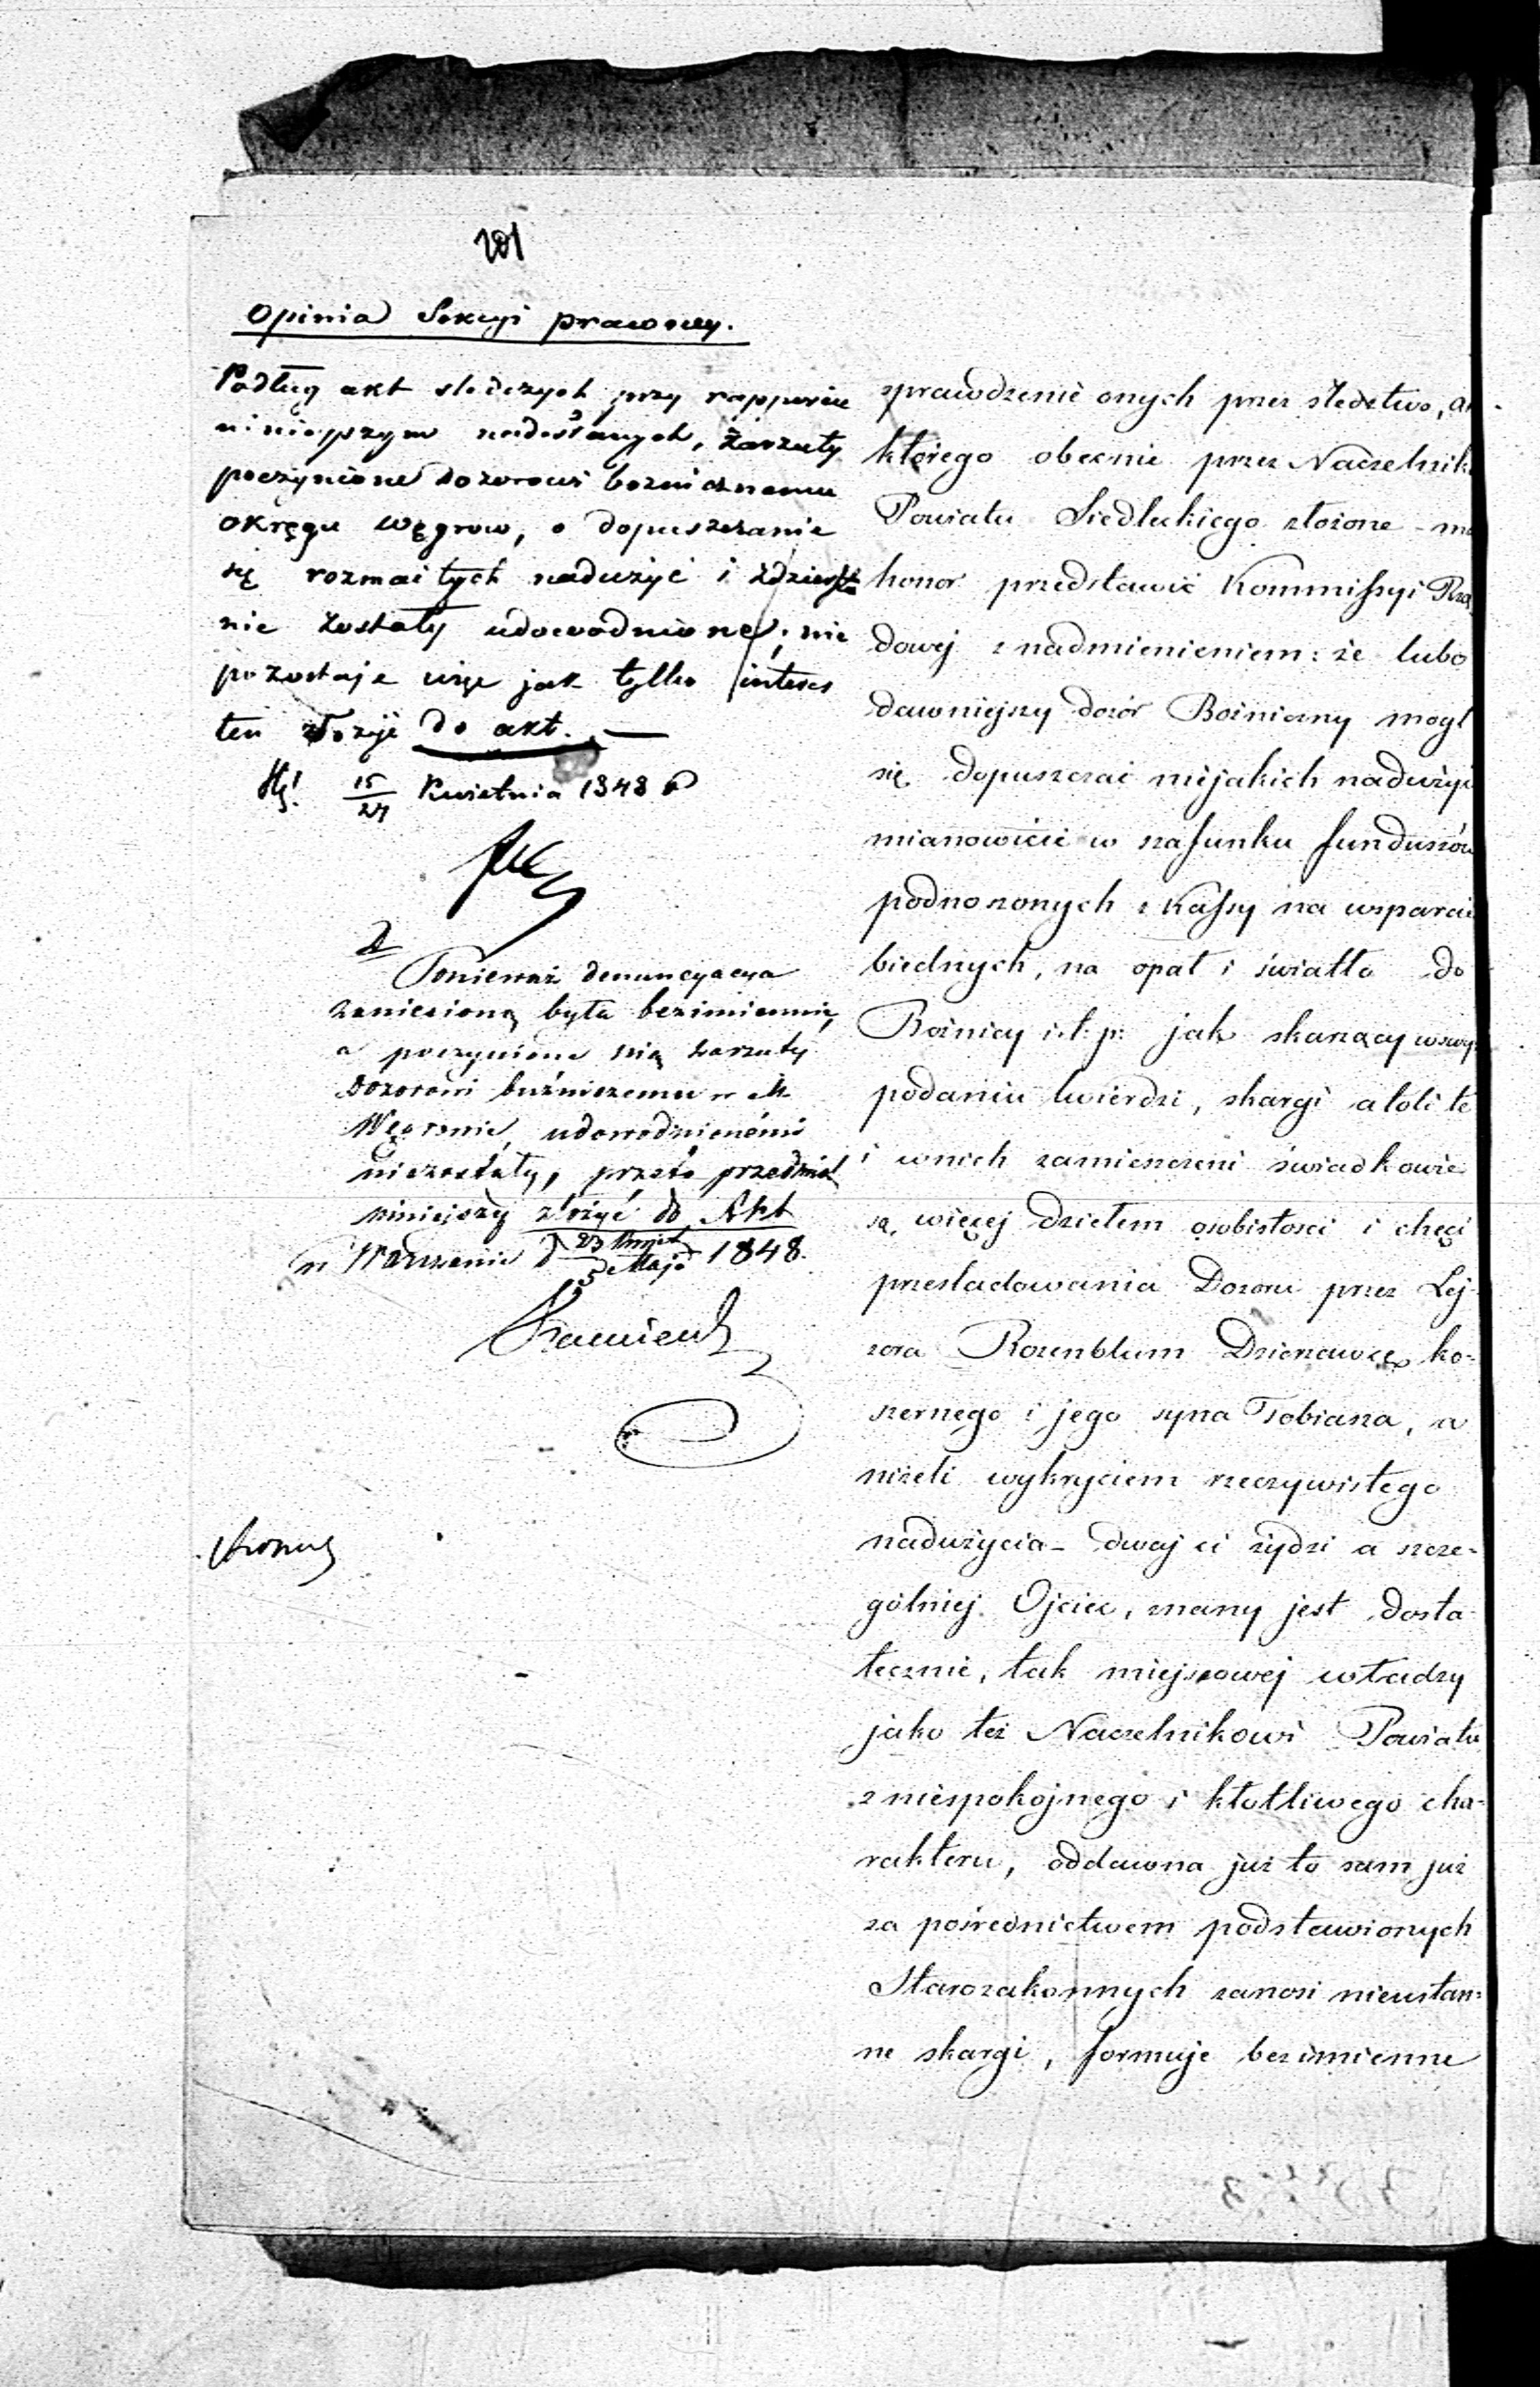 201
Opinia Sekcyi prawney.
Podług akt śledczych przy rapporcie
niniejszym nadesłanych, zarzuty
poczynione dozorowi bożnicznemu
okręgu Węgrow, o dopuszczanie
się rozmaitych nadużyć i zdzierstw
nie zostały udowodnione; nie
pozostaje więc jak tylko interes
ten złożyć do akt. —
15/27 Kwietnia 1848
Ponieważ denuncyacya
zaniesioną była bezimiennie,
a poczynione nią zarzuty
Dozorowi bużniczemu w M.
Węgrowie, udowodnionémi
niezostały, przeto przedmiot
niniejszy złożyć do Akt
w Warszawie d 23 / 5 Maja 1848.
sprawdzenie onych przez śledztwo,
którego obecnie przez Naczelnik
Powiatu Siedleckiego złożone - ma
honor przedstawić Kommissyi Rzą
dowej z nadmienieniem: że lubo
dawniejszy dozór Bożniczny mogł
się dopuszczać niejakich nadużyć
mianowicie w szafunku funduszów
podnoszonych z Kassy na wsparcie
biednych, na opał i światło do
Bożnicy i t: p: jak skarżący w swym
podaniu twierdzi, skargi atoli te
i wnich zamieszczeni świadkowie
są, więcej dziełem osobistosci i chęci
przesladowania Dozoru przez Lej-
zora Rozenblum Dzierżawcę ko-
szernego i jego syna Tobiasza, a
niżeli wykryciem rzeczywistego
nadużycia - dwaj ci żydzi a szcze-
gólniej Ojciec, znany jest dosta-
tecznie, tak miejscowej władzy
jako też Naczelnikowi Powiatu
z niespokojnego i kłotliwego cha-
rakteru, oddawna już to sam już
za pośrednictwem podstawionych
Starozakonnych zanosi nieustan-
ne skargi, formuje bezimienne